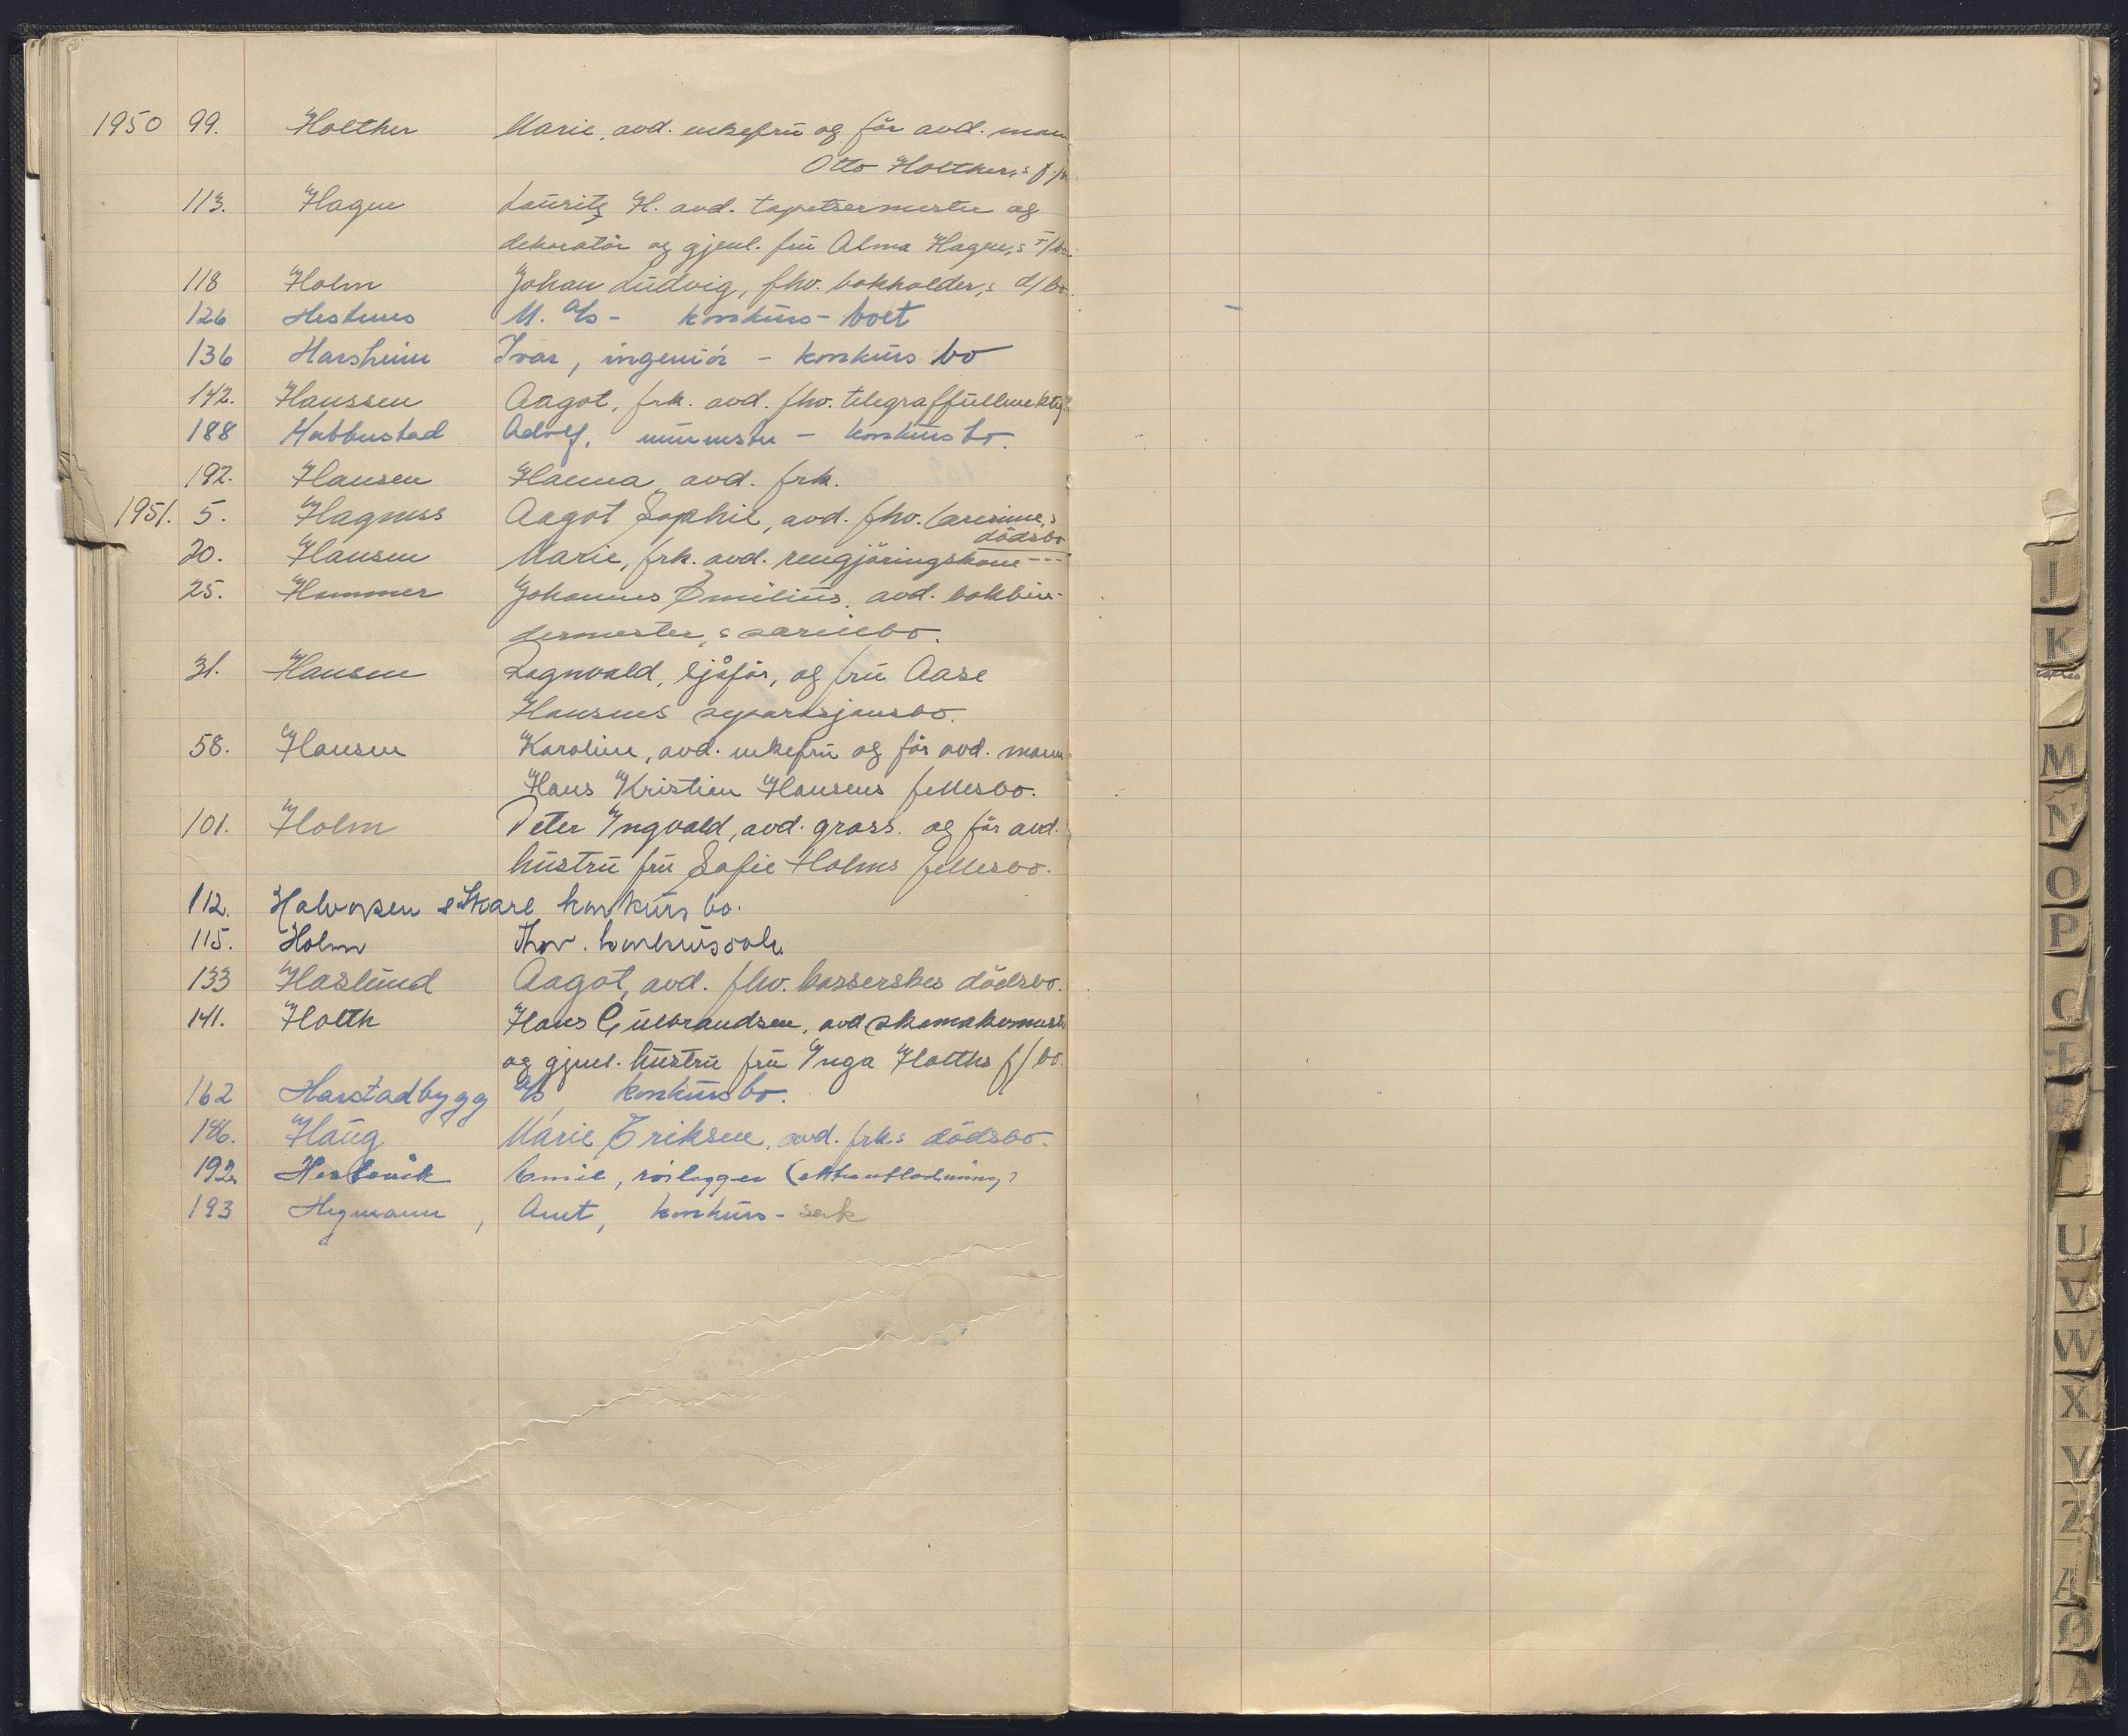 1950 99. Holther Marie, avd. enkefru og før avd. mann
Otto Holther,s f/b
113. Hagen Lauritz H. avd. tapetsermester og
dekoratør og gjenl. fru Alma Hagen,s f/bo.
118 Holm Johan Ludvig, fhv. bokholder,s d/bo.
126 Hestenes M. A/S - konkurs - boet
136 Harsheim Ivar, ingeniør - konkurs bo
142. Hanssen Aagot, frk. avd. fhv. telegraffullmektig
188 Habbestad Adolf, murmester - konkursbo.
192. Hansen Hanna, avd. frk.
1951. 5. Hagness Aagot Sophie, avd. fhv. lærerinne,s
dødsbo
20. Hansen Marie, frk. avd. rengjøringskone ---
25. Hammer Johannes Emilius, avd. bokbin-
dermester,s særiebo.
31. Hansen Ragnvald, sjåfør, og fru Aase
Hansens separasjonsbo.
58. Hansen Karoline, avd. enkefru og før avd. mann
Hans Kristian Hansens fellesbo.
101. Holm Peter Yngvald, avd. gross. og før avd.
hustru fru Sofie Holms fellesbo.
112. Halvorsen & Skare konkurs bo.
115. Holm Thor. konkurssak.
133 Haslund Aagot, avd. fhv. kasserskes dødsbo.
141. Holth Hans Gulbrandsen, avd skomakermester
og gjenl. hustru fru Inga Holths f/bo.
162 Harstadbygg A/S konkursbo.
186. Haug Marie Eriksen, avd. frk.s dødsbo.
192. Emil, rørlegger
193 Hegmann, Arnt, konkurs - sak
J
K
M
N
O
P
U
V
W
X
Y
Z
Æ
Ø
Å